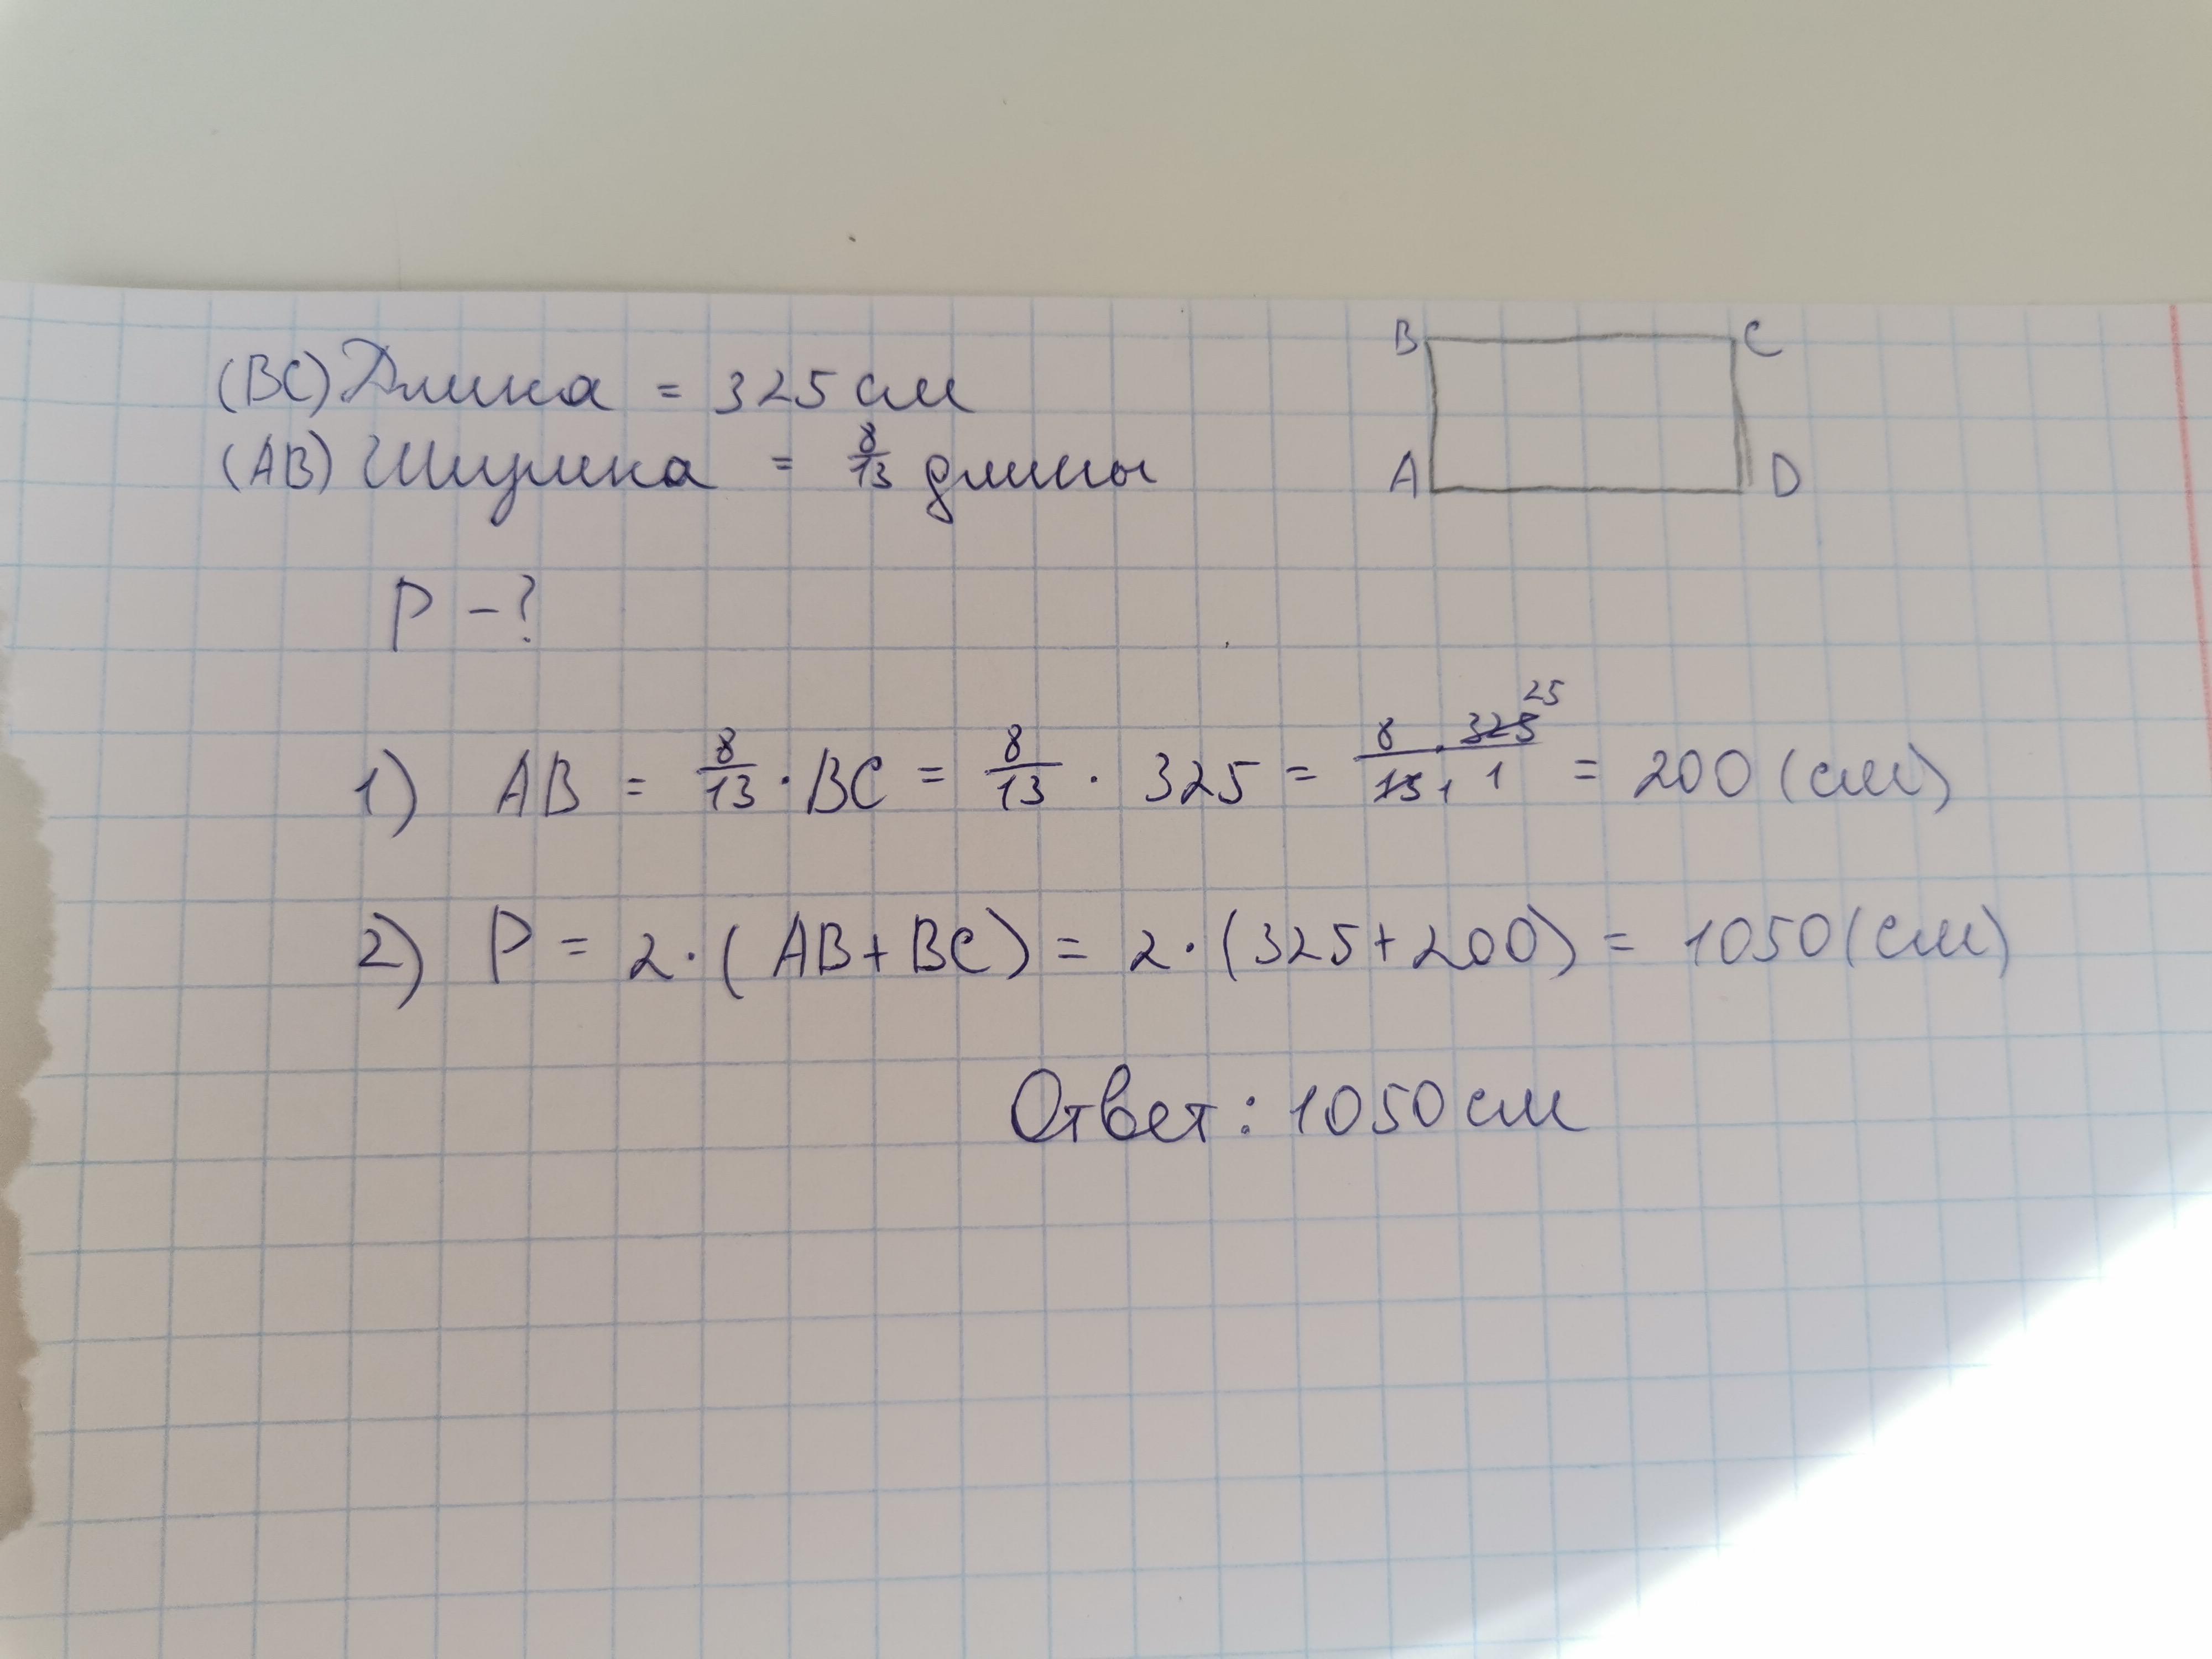 (BC) Длина = 325 см
(AB) Ширина = 8/13 длины
B C
A D
P - ?
1) AB = 8/13 · BC = 8/13 · 325 = 8/13 1 · 325 25/1 = 200 (см)
2) P = 2 · (AB + BC) = 2 · (325 + 200) = 1050 (см)
Ответ: 1050 см